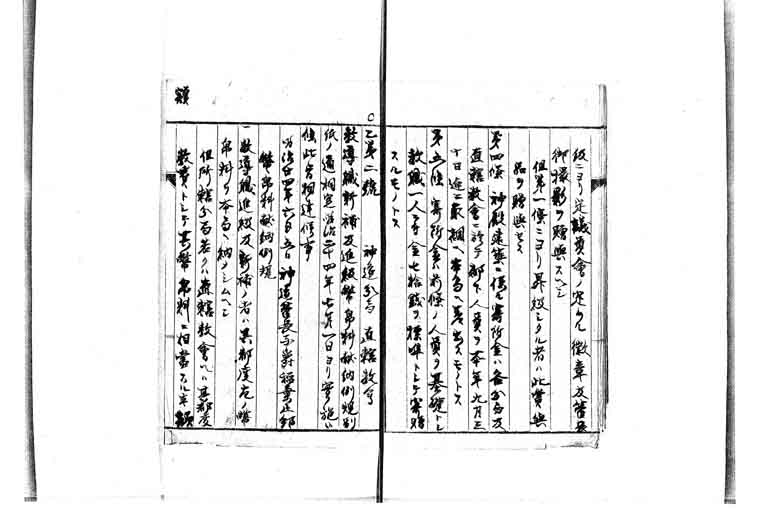 級ニヨリ定議員會ノ定ムル徽章及管長
御撮影ヲ贈與スヘシ
但第一條ニヨリ昇級シタル者ハ此賞與
品ヲ贈與セス
第四條 神殿建築ニ係ル寄附金ハ各分局及
直轄教會ニ於テ部下人員ヲ本年九月三
十日迄ニ取調ヘ本局ヘ差出スモノトス
第五條 寄附金ハ前條ノ人員ヲ基礎トシ
教職一人ニ付金七拾錢ヲ標準トシテ募贈
スルモノトス
乙第二號 神道分局 直轄教會
教導職新補及進級幣帛料献納例規別
紙ノ通相定明治二十四年七月一日ヨリ實施ス
條此旨相達候事
明治廿四年六月五日 神道管長子爵稲葉正邦
幣帛料献納例規
一 教導職進級及新補ノ者ハ其都度左ノ幣
帛料ヲ本局ヘ納メシムヘシ
但所轄分局若クハ直轄教會ヘハ其都度
教費トシテ其幣帛料ニ相當スル半額
額